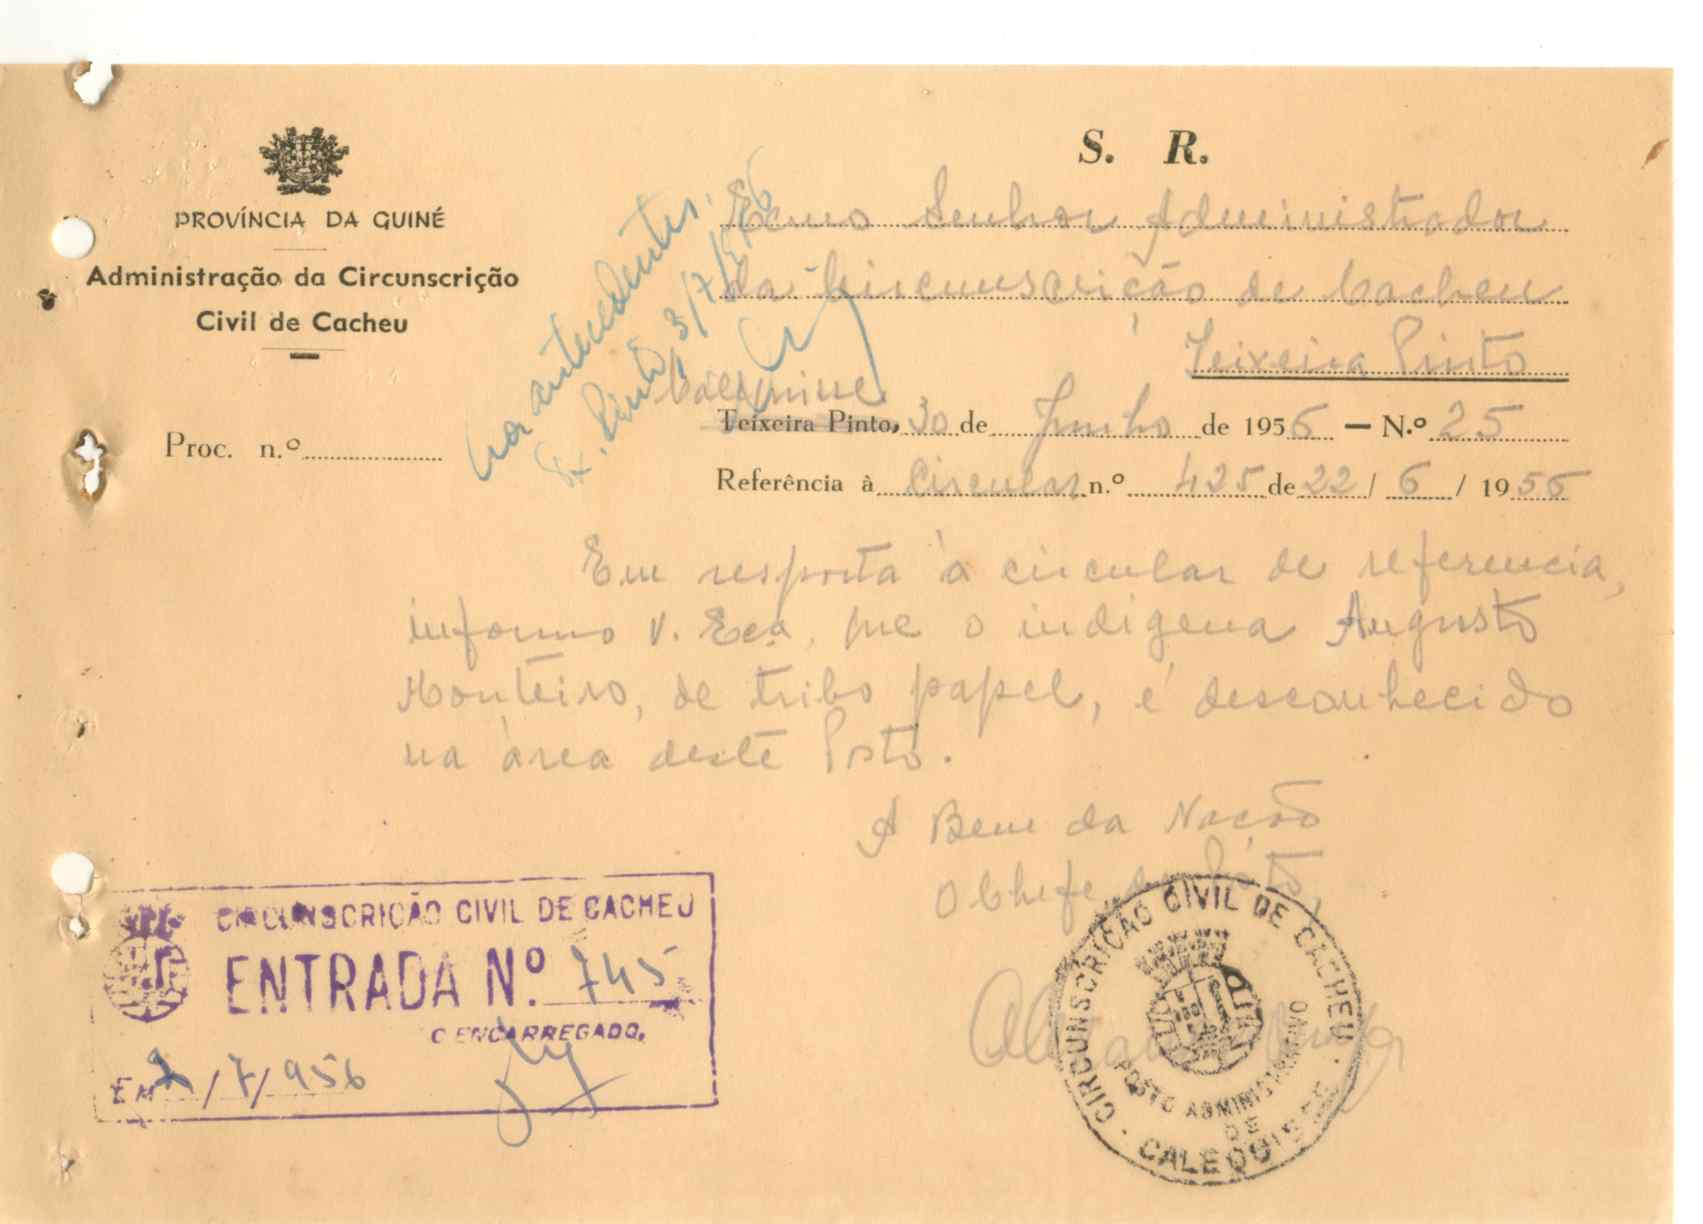 S. R.
PROVÍNCIA DA GUINÉ
Administração da Circunscrição
Civil de Cacheu
Exmo Senhor Administrador
da Circunscrição de Cacheu
Teixeira Pinto
aos antecedentes.
Tx. Pinto, 3/7/956
Caléquisse
Teixeira Pinto, 30 de Junho de 1956 — N.º 25
Proc. n.º
Referência à Circular n.º 425 de 22 / 6 / 1956
Em resposta à circular de referencia,
informo V. Exa, que o indigena Augusto
Monteiro, de tribo papel, é desconhecido
na área deste Posto.
A Bem da Nação
O Chefe do Posto,
CIRCUNSCRIÇÃO CIVIL DE CACHEU
ENTRADA N.º 745
O ENCARREGADO,
EM /7/956
CIRCUNSCRIÇÃO CIVIL DE CACHEU
POSTO ADMINISTRATIVO
DE
CALEQUISSE